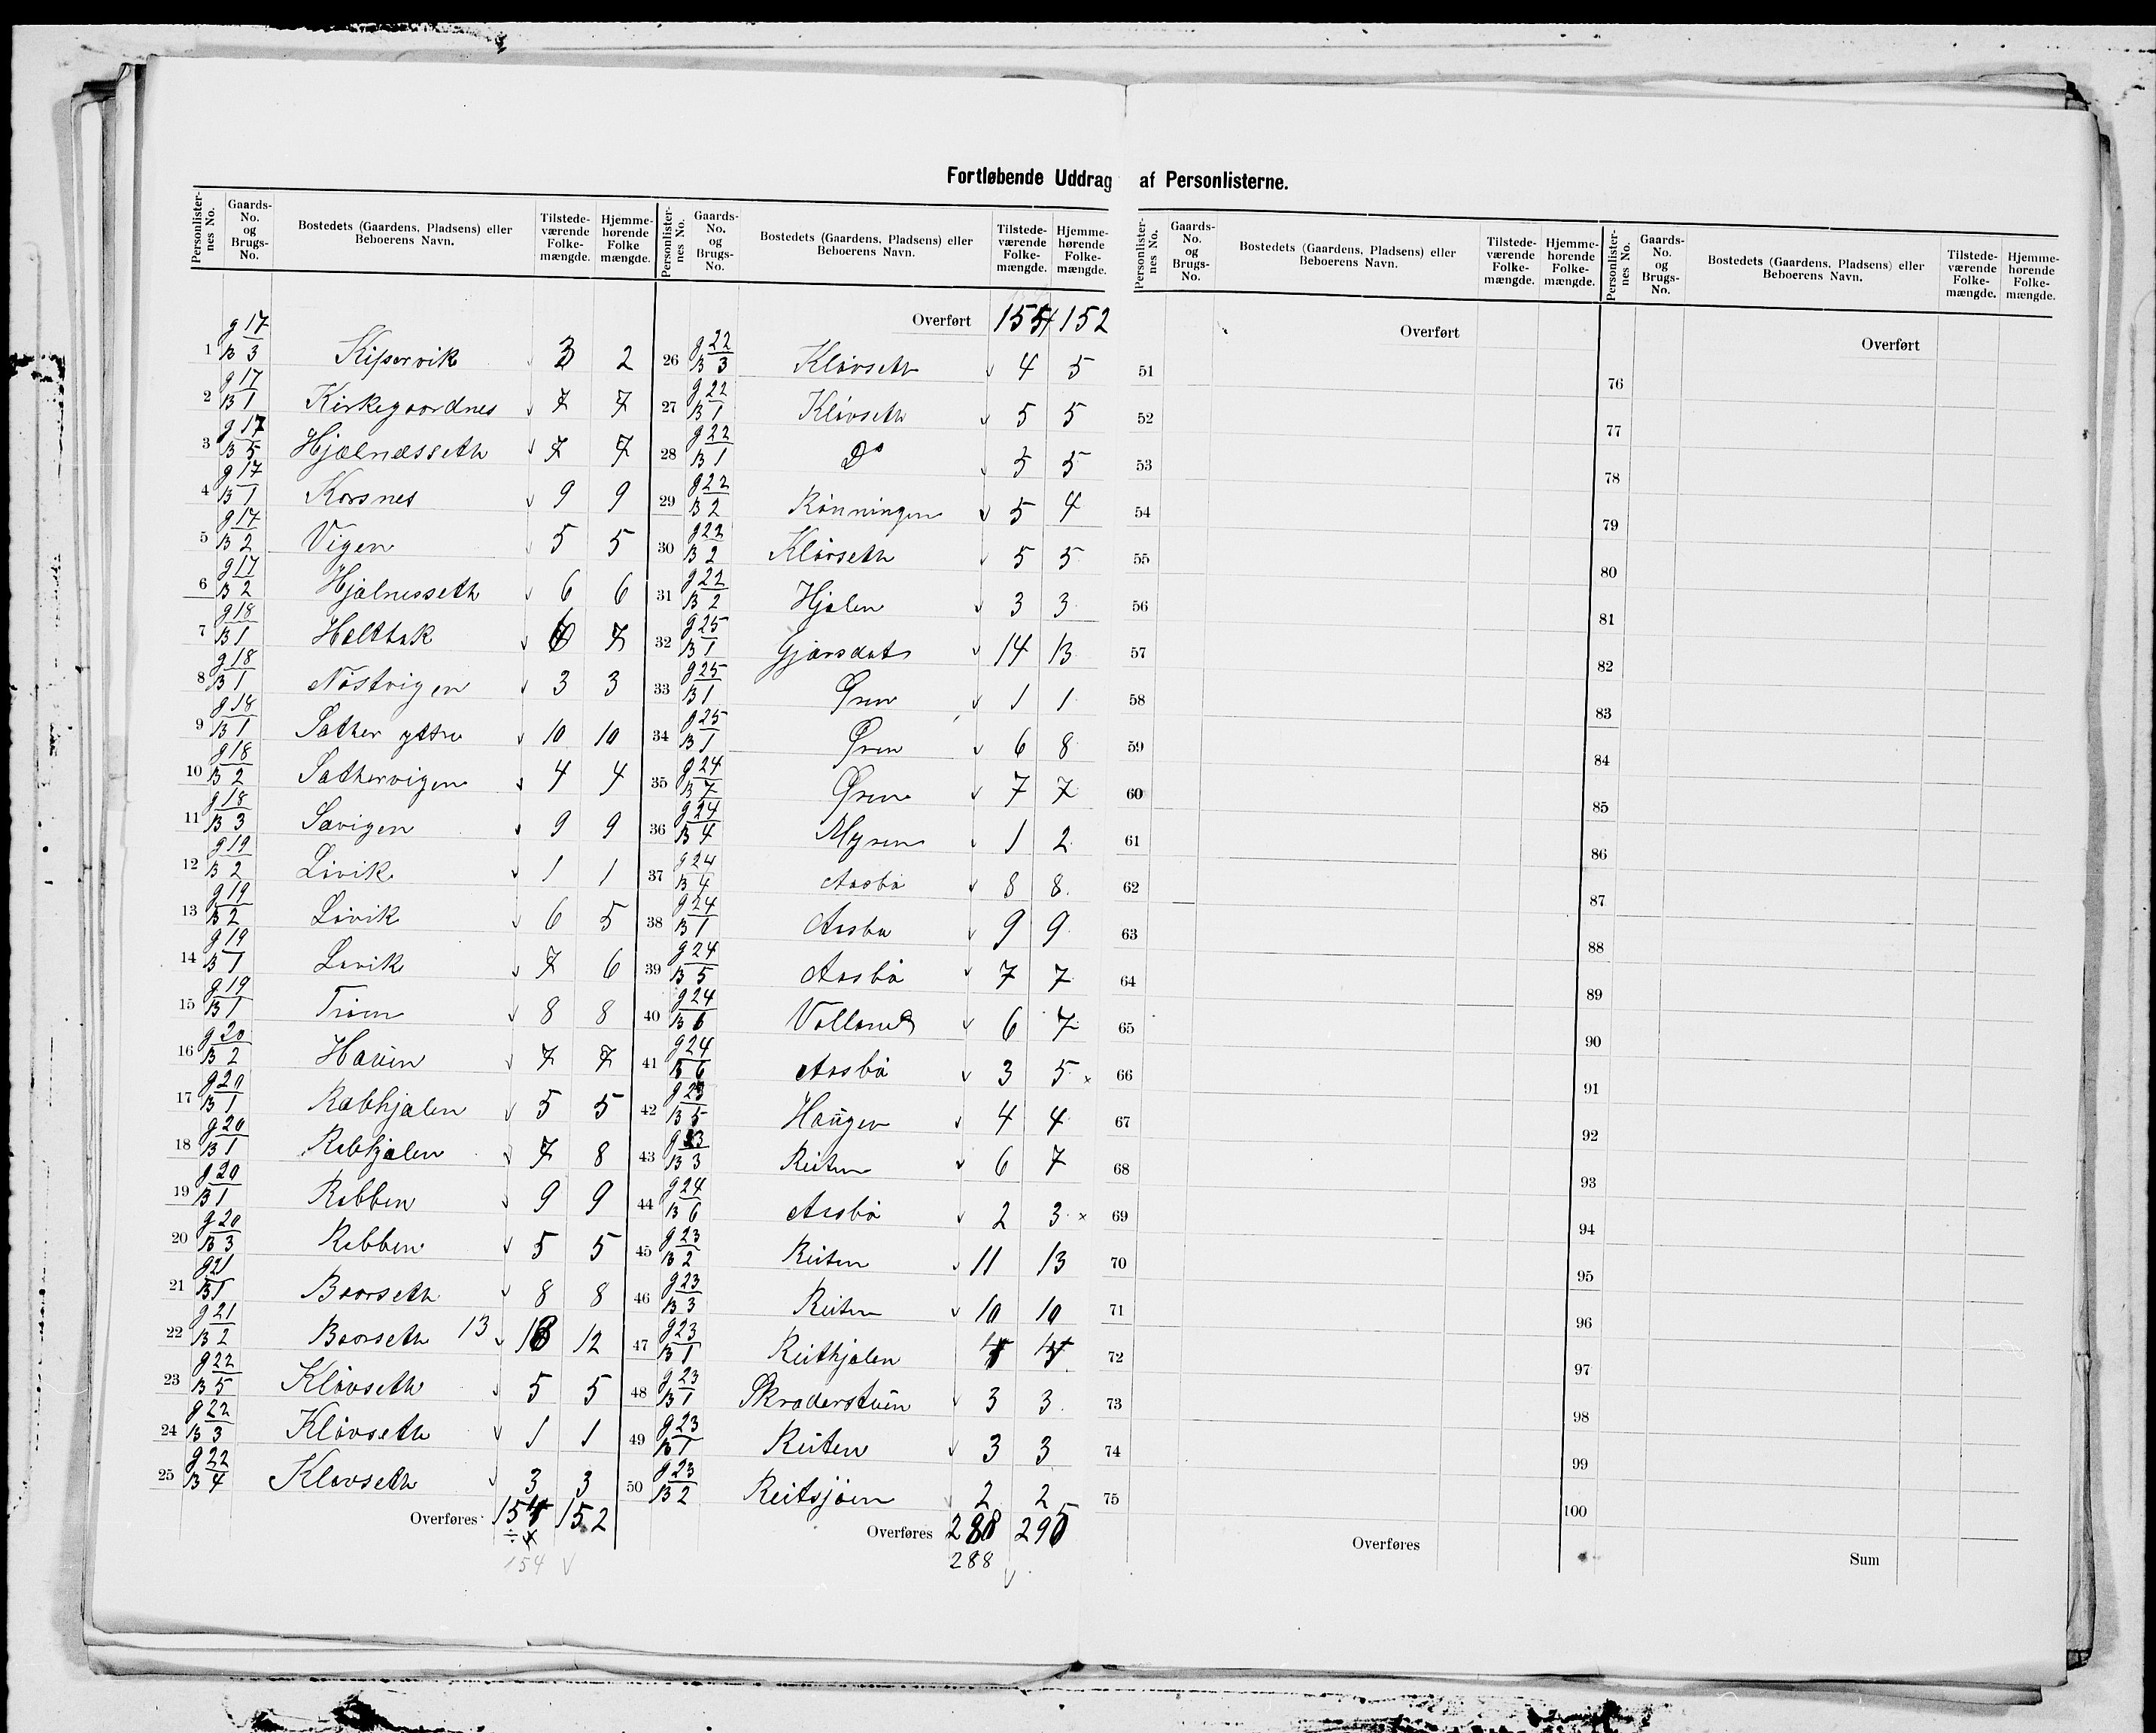 Fortløbende Uddrag af Personlisterne.
Personlisternes No. Gaards-No. og Brugs-No. Bostedets (Gaardens, Pladsens) eller Beboerens Navn. Tilstedeværende Folkemængde. Hjemmehørende Folkemængde.
1 g 17 B 3 Kipervik 3 2
2 g 17 B 1 Kirkegaardnes 7 7
3 g 17 B 5 Hjælnesseth 7 7
4 g 17 B 1 Korsnes 9 9
5 g 17 B 2 Vigen 5 5
6 g 17 B 2 Hjælnesseth 6 6
7 g 18 B 1 Halttak 6 7
8 g 18 B 1 Nöstvigen 3 3
9 g 18 B 1 Sæther yttre 10 10
10 g 18 B 2 Sæthervigen 4 4
11 g 18 B 3 Sævigen 9 9
12 g 19 B 2 Lövik 1 1
13 g 19 B 2 Lövik 6 5
14 g 19 B 1 Lövik 7 6
15 g 19 B 1 Tröen 8 8
16 g 20 B 2 Hauen 7 7
17 g 20 B 1 Rabhjælen 5 5
18 g 20 B 1 Rabhjælen 7 8
19 g 20 B 1 Rabben 9 9
20 g 20 B 3 Rabben 5 5
21 g 21 B 1 Baarseth 8 8
22 g 21 B 2 Baarseth 13 13 12
23 g 22 B 5 Klövseth 5 5
24 g 22 B 3 Klövseth 1 1
25 g 22 B 4 Klövseth 3 3
Overføres 154 152
154 v
Overført 154 152
26 g 22 B 3 Klövseth 4 5
27 g 22 B 1 Klövseth 5 5
28 g 22 B 1 Do 5 5
29 g 22 B 2 Rönningen 5 4
30 g 22 B 2 Klövseth 5 5
31 g 22 B 2 Hjælen 3 3
32 g 25 B 1 Gjersdat 14 13
33 g 25 B 1 Øren 1 1
34 g 25 B 1 Øren 6 8
35 g 24 B 7 Øren 7 7
36 g 24 B 4 Myren 1 2
37 g 24 B 4 Aasbö 8 8
38 g 24 B 1 Aasbö 9 9
39 g 24 B 5 Aasbö 7 7
40 g 24 B 6 Volland 6 7
41 g 24 B 6 Aasbö 3 5 x
42 g 23 B 5 Haugen 4 4
43 g 23 B 3 Reiten 6 7
44 g 24 B 6 Aasbö 2 3 x
45 g 23 B 2 Reiten 11 13
46 g 23 B 3 Reiten 10 10
47 g 23 B 1 Reithjælen 4 4
48 g 23 B 1 Skraderstuen 3 3
49 g 23 B 1 Reiten 3 3
50 g 23 B 2 Reitsjöen 2 2
Overføres 288 295
288 v
Personlisternes No. Gaards-No. og Brugs-No. Bostedets (Gaardens, Pladsens) eller Beboerens Navn. Tilstedeværende Folkemængde. Hjemmehørende Folkemængde.
Overført
51
52
53
54
55
56
57
58
59
60
61
62
63
64
65
66
67
68
69
70
71
72
73
74
75
Overføres
Overført
76
77
78
79
80
81
82
83
84
85
86
87
88
89
90
91
92
93
94
95
96
97
98
99
100
Sum